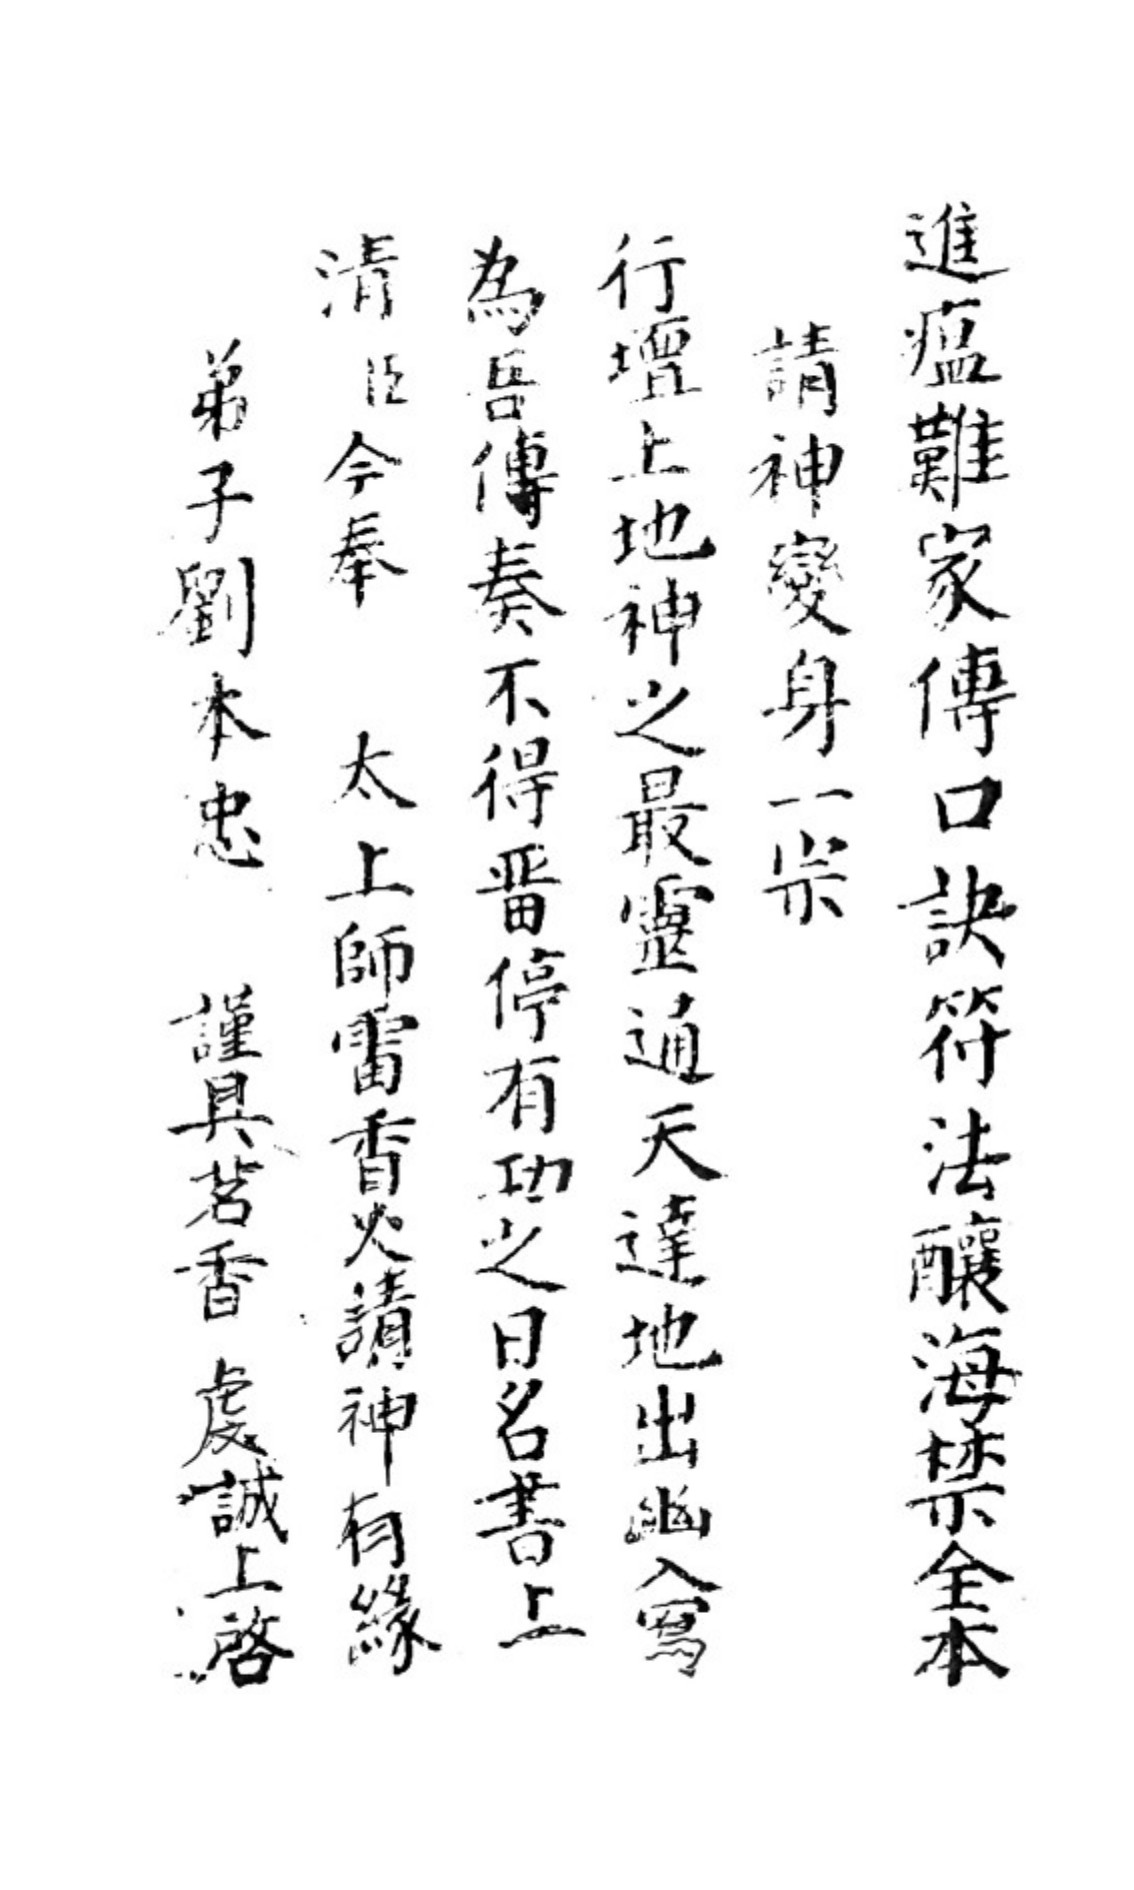 進瘟難家傳口訣符法釀海禁全本
請神變身一宗
行壇土地神之最靈通天達地出幽入寫
為吾傳奏不得畱停有功之日名書上
清臣今奉 太上師雷香火請神有緣
弟子劉本忠 謹具茗香 虔誠上啓